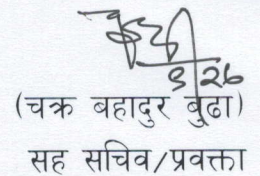 ९/२६
(चक्र बहादुर बुढा)
सह सचिव/प्रवक्ता